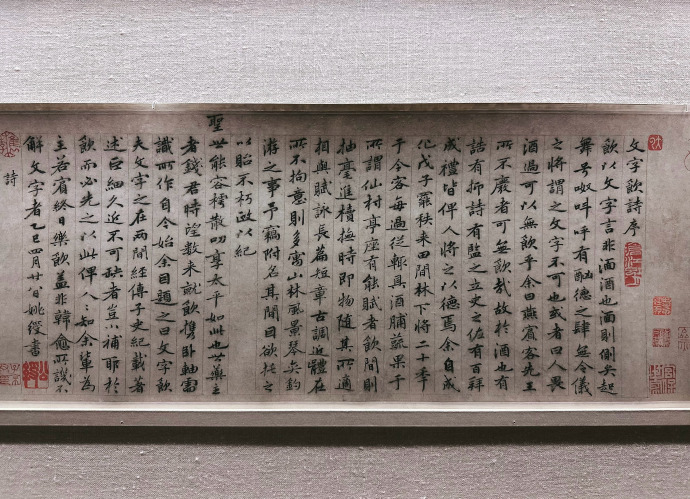 文字飲詩序
飲以文字言非湎酒也湎則側弁起
舞号呶叫呼有酗德之肆無令儀
之將謂之文字不可也或者曰人畏
酒過可以無飲乎余曰燕賓客先王
所不廢者可無飲哉故於酒也有
誥有抑詩有監之立史之佐有百拜
成禮皆俾人將之以德焉余自成
化戊子罷秩來田間林下將二十季
于今客每過從輒具酒脯蔬果于
所謂仙村亭座有能賦者飲間則
抽毫進牘撫時即物隨其所適
相與賦詠長篇短章古調近體在
所不拘意則多寓山林風景琴奕釣
游之事予竊附名其間目欲托之
以貽不朽故以紀
聖世能容樗散叨享太平如此也共藥主
者錢君時望數來就飲携卧軸需
識所作自今始余目題之曰文字飲
夫文字之在兩間經傳子史紀載著
述巨細久近不可缺者豈小補耶於
飲而必先之以此俾人人知余輩為
主若賓終日樂飲蓋非韓愈所譏不
解文字者乙巳四月廿八日姚綬書
詩